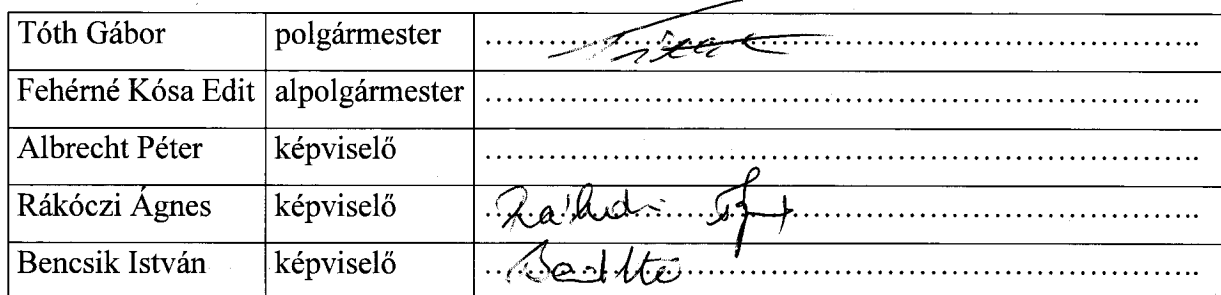 Tóth Gábor polgármester ........................................................................
Fehérné Kósa Edit alpolgármester ........................................................................
Albrecht Péter képviselő ........................................................................
Rákóczi Ágnes képviselő ........................................................................
Bencsik István képviselő ........................................................................